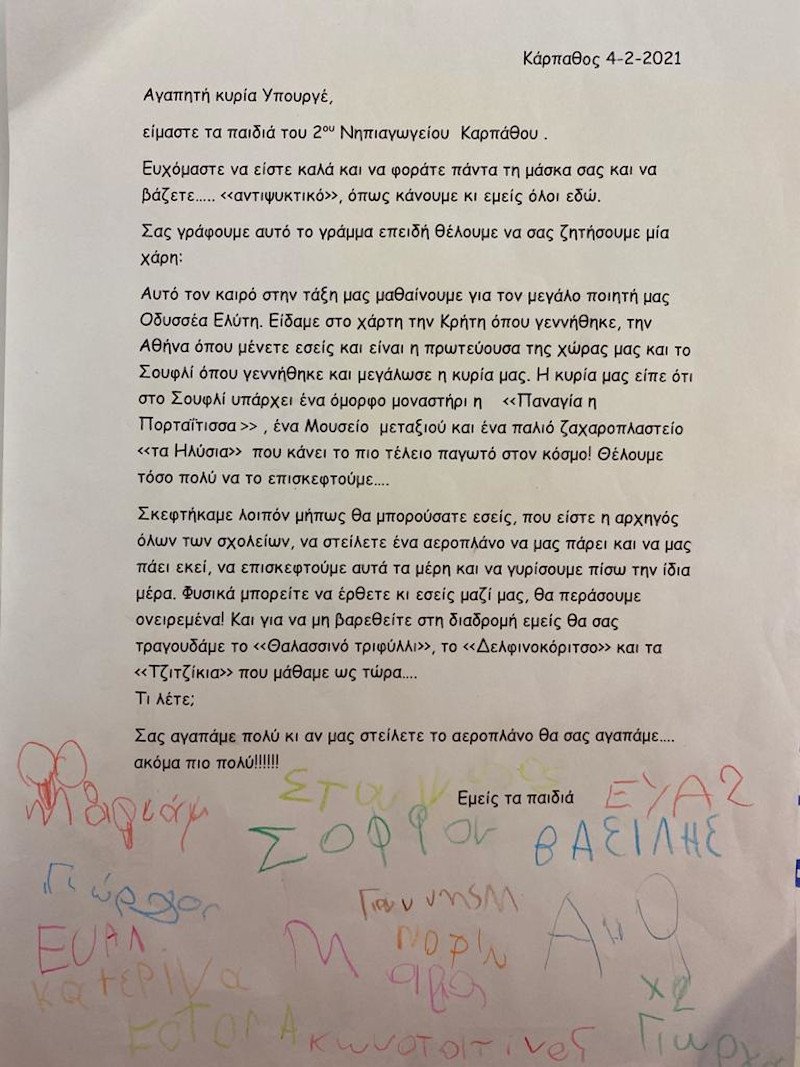 Κάρπαθος 4-2-2021
Αγαπητή κυρία Υπουργέ,
είμαστε τα παιδιά του 2ου Νηπιαγωγείου Καρπάθου .
Ευχόμαστε να είστε καλά και να φοράτε πάντα τη μάσκα σας και να
βάζετε..... <<αντιψυκτικό>>, όπως κάνουμε κι εμείς όλοι εδώ.
Σας γράφουμε αυτό το γράμμα επειδή θέλουμε να σας ζητήσουμε μία
χάρη:
Αυτό τον καιρό στην τάξη μας μαθαίνουμε για τον μεγάλο ποιητή μας
Οδυσσέα Ελύτη. Είδαμε στο χάρτη την Κρήτη όπου γεννήθηκε, την
Αθήνα όπου μένετε εσείς και είναι η πρωτεύουσα της χώρας μας και το
Σουφλί όπου γεννήθηκε και μεγάλωσε η κυρία μας. Η κυρία μας είπε ότι
στο Σουφλί υπάρχει ένα όμορφο μοναστήρι η <<Παναγία η
Πορταΐτισσα >> , ένα Μουσείο μεταξιού και ένα παλιό ζαχαροπλαστείο
<<τα Ηλύσια>> που κάνει το πιο τέλειο παγωτό στον κόσμο! Θέλουμε
τόσο πολύ να το επισκεφτούμε....
Σκεφτήκαμε λοιπόν μήπως θα μπορούσατε εσείς, που είστε η αρχηγός
όλων των σχολείων, να στείλετε ένα αεροπλάνο να μας πάρει και να μας
πάει εκεί, να επισκεφτούμε αυτά τα μέρη και να γυρίσουμε πίσω την ίδια
μέρα. Φυσικά μπορείτε να έρθετε κι εσείς μαζί μας, θα περάσουμε
ονειρεμένα! Και για να μη βαρεθείτε στη διαδρομή εμείς θα σας
τραγουδάμε το <<Θαλασσινό τριφύλλι>>, το <<Δελφινοκόριτσο>> και τα
<<Τζιτζίκια>> που μάθαμε ως τώρα....
Τι λέτε;
Σας αγαπάμε πολύ κι αν μας στείλετε το αεροπλάνο θα σας αγαπάμε....
ακόμα πιο πολύ!!!!!!
Εμείς τα παιδιά
ΒΑΣΙΛΗΣ
Γιώργος
κατερίνα